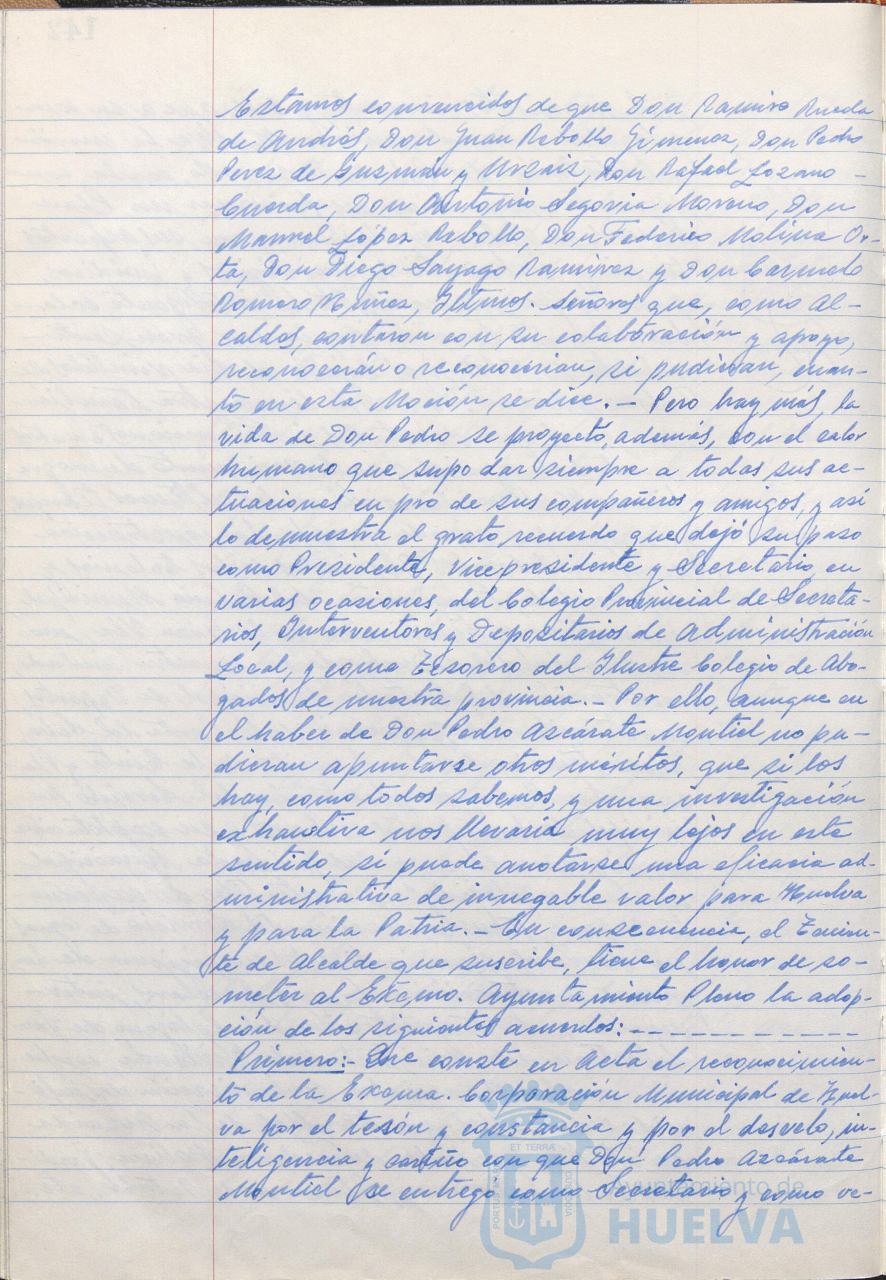 Estamos convencidos de que Don Ramiro Rueda
de Andrés, Don Juan Rebollo Gimenez, Don Pedro
Perez de Guzmán y Urzaiz, Don Rafael Lozano
Cuerda, Don Antonio Segovia Moreno, Don
Manuel López Rebollo, Don Federico Molina Or-
ta, Don Diego Sayago Ramirez y Don Carmelo
Romero Núñez, Iltmos. Señores que, como Al-
caldes, contaron con su colaboración y apoyo,
reconocerán o reconocerian, si pudieran, cuan-
to en esta Moción se dice.- Pero hay más, la
vida de Don Pedro se proyectó, además, con el calor
humano que supo dar siempre a todas sus ac-
tuaciones en pro de sus compañeros y amigos, y asi
lo demuestra el grato recuerdo que dejó su paso
como Presidente, Vicepresidente y Secretario, en
varias ocasiones, del Colegio Provincial de Secreta-
rios, Interventores y Depositarios de Administración
Local, y como Tesorero del Ilustre Colegio de Abo-
gados de nuestra provincia.- Por ello, aunque en
el haber de Don Pedro Azcárate Montiel no pu-
dieran apuntarse otros méritos, que si los
hay, como todos sabemos, y una investigación
exhaustiva nos llevaria muy lejos en este
sentido, si puede anotarse una eficacia ad-
ministrativa de innegable valor para Huelva
y para la Patria.- En consecuencia, el Tenien-
te de Alcalde que suscribe, tiene el honor de so-
meter al Excmo. Ayuntamiento Pleno la adop-
ción de los siguientes acuerdos:- - - - - - - - - -
Primero:- Que conste en Acta el reconocimien-
to de la Excma. Corporación Municipal de Huel-
va por el tesón y constancia y por el desvelo, in-
teligencia y cariño con que Don Pedro Azcárate
Montiel se entregó como Secretario y como ve-
ET TERRA
Ayuntamiento de
HUELVA